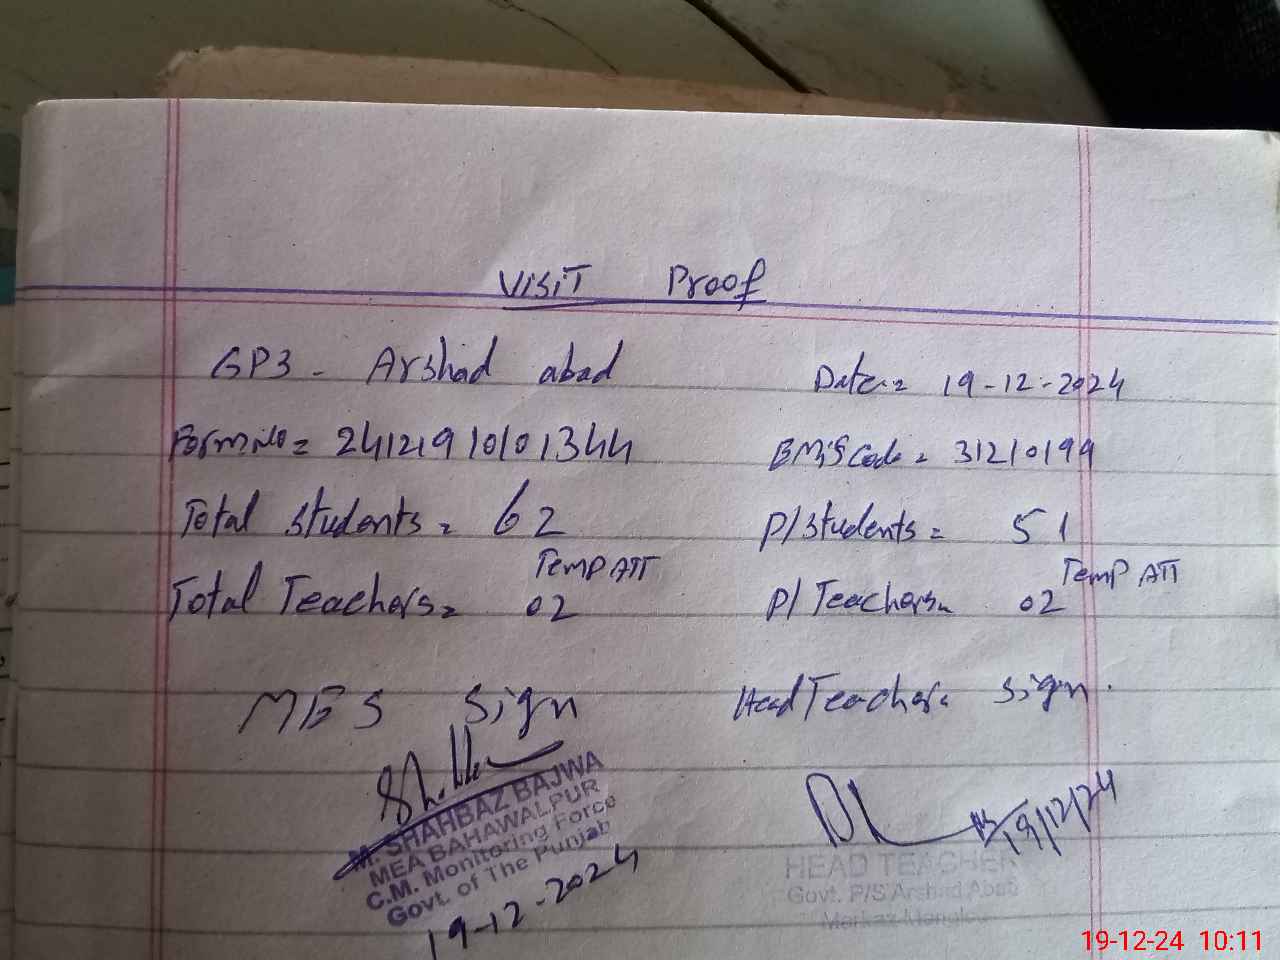 VISIT Proof
GPS - Arshad abad Date = 19-12-2024
Form No = 24121910101344 EMIS Code = 31210199
Total Students = 62 P/Students = 51
Temp ATT Temp ATT
Total Teachers = 02 P/Teachers = 02
MES Sign Head Teacher Sign.
M. SHAHBAZ BAJWA
MEA BAHAWALPUR
C.M. Monitoring Force
Govt. of The Punjab
19-12-2024
19/12/24
HEAD TEACHER
Govt. P/S Arshad Abad
Markaz
19-12-24 10:11